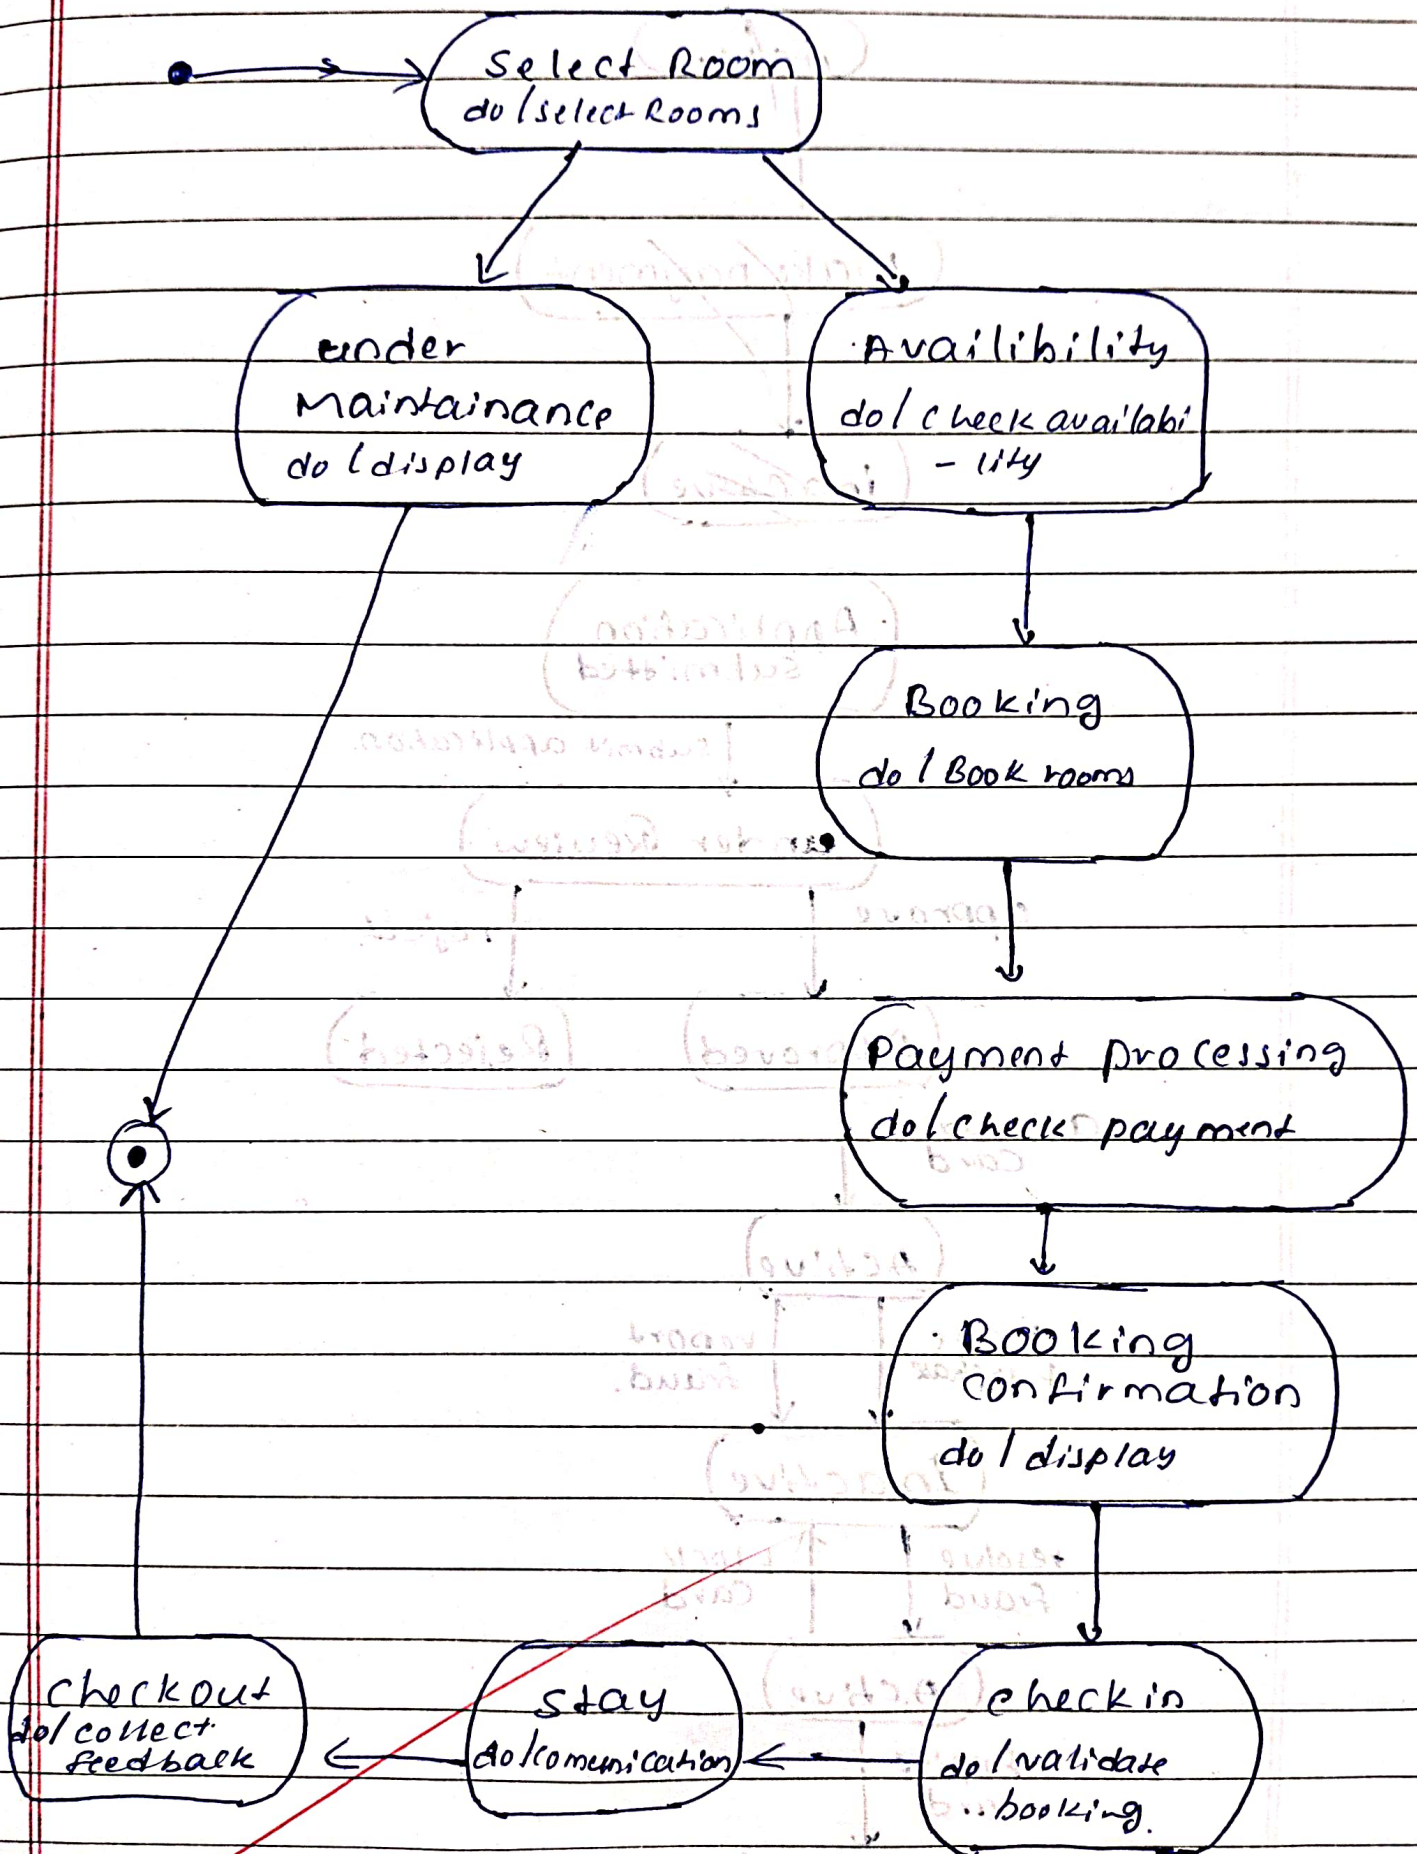 Select Room
do/select Rooms
under
Maintainance
do/display
Availibility
do/check availabi
- lity
Booking
do/Book rooms
Payment processing
do/check payment
Booking
confirmation
do/display
checkin
do/validate
booking.
stay
do/comunication
checkout
do/collect
feedback